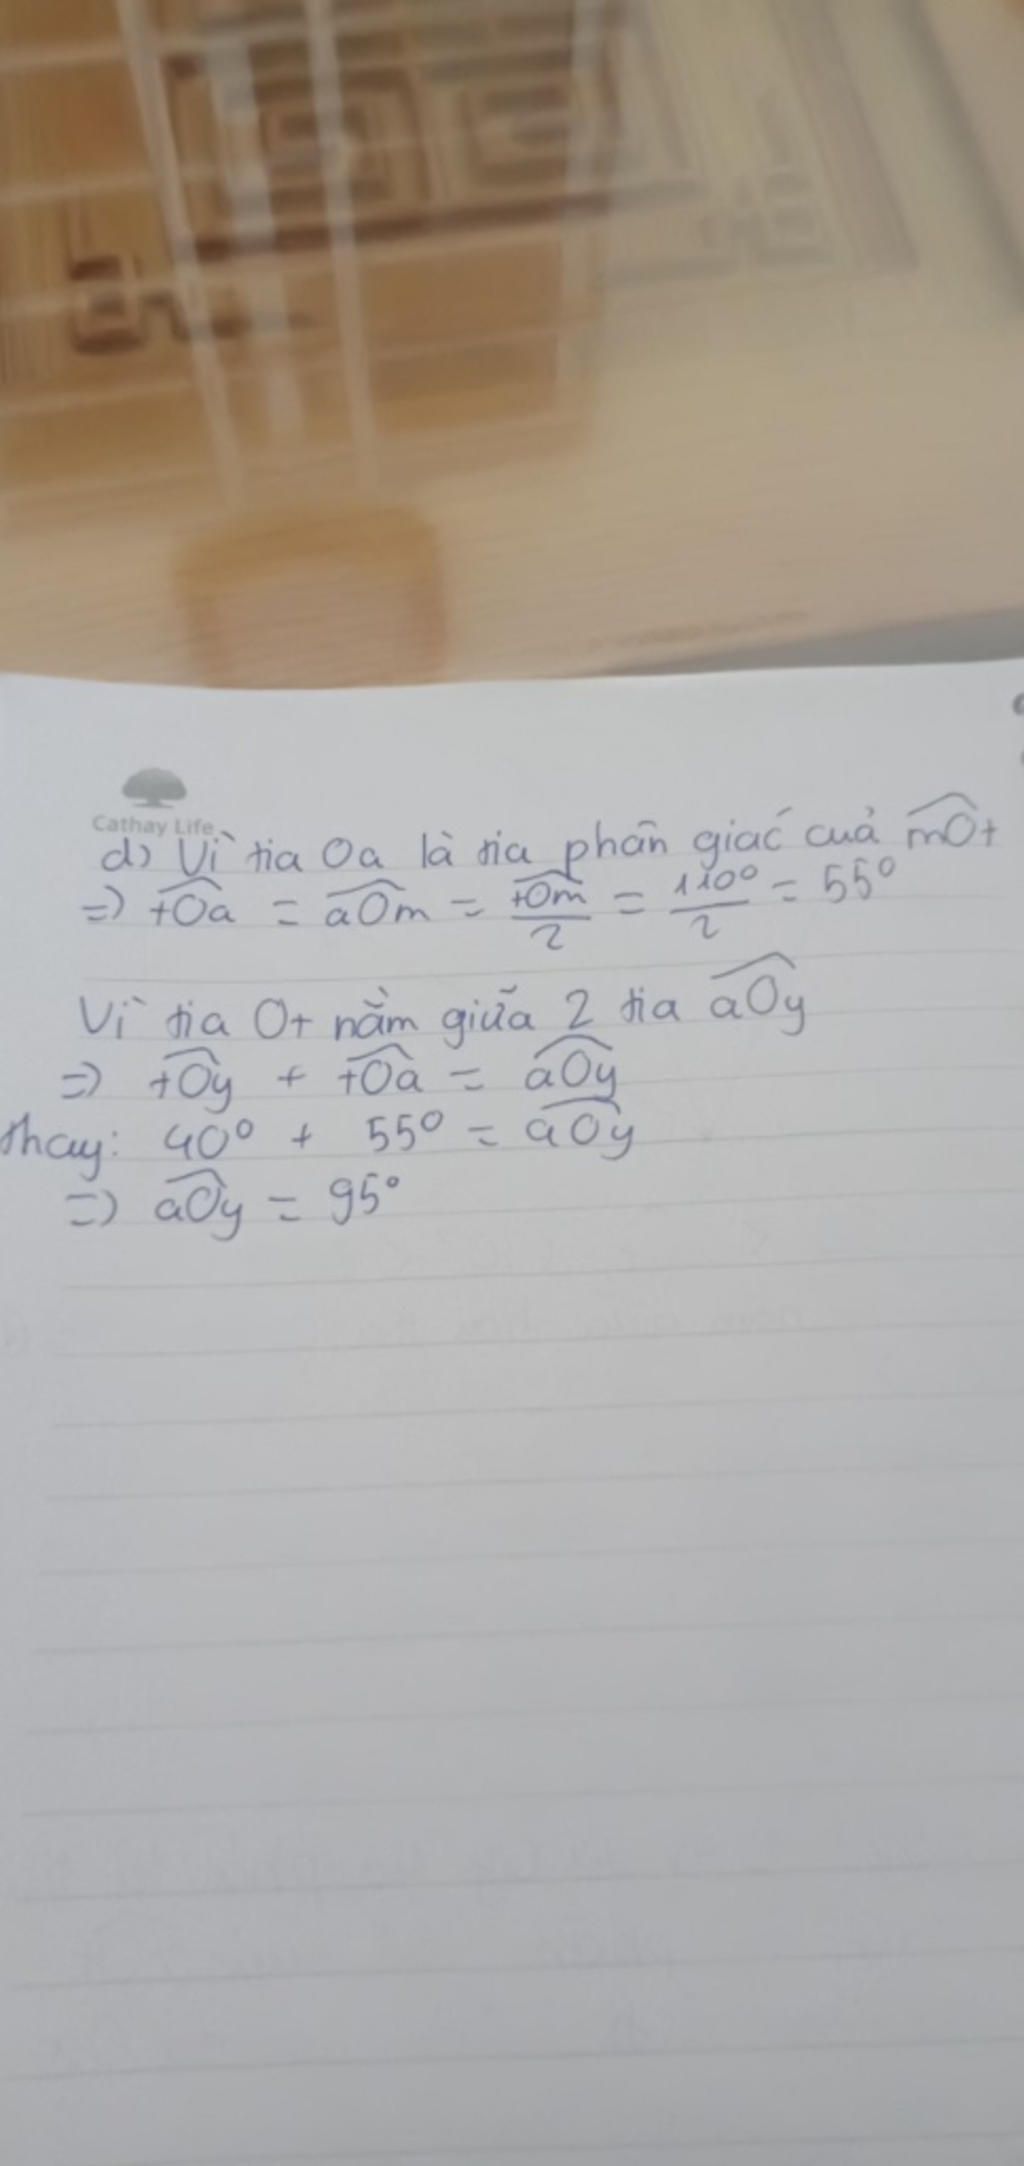 Cathay Life
d) Vì tia Oa là tia phân giác của $\widehat{mOt}$
=> $\widehat{tOa}$ = $\widehat{aOm}$ = $\frac{\widehat{tOm}}{2}$ = $\frac{110°}{2}$ = 55°
Vì tia Ot nằm giữa 2 tia $\widehat{aOy}$
=> $\widehat{tOy}$ + $\widehat{tOa}$ = $\widehat{aOy}$
thay: 40° + 55° = $\widehat{aOy}$
=> $\widehat{aOy}$ = 95°